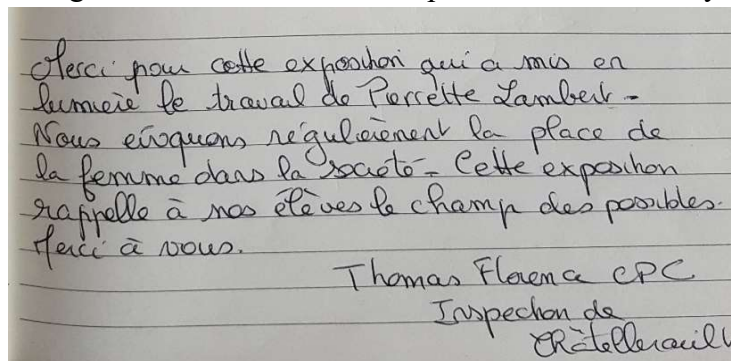 Merci pour cette exposition qui a mis en
lumière le travail de Pierrette Lambert -
Nous évoquons régulièrement la place de
la femme dans la société - Cette exposition
rappelle à nos élèves le champ des possibles.
Merci à vous.
Thomas CPC
Inspection de